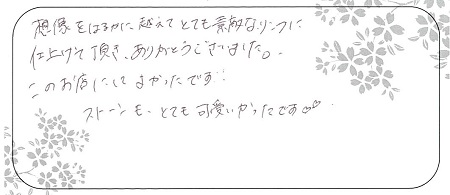 想像をはるかに越えてとても素敵なリングに
仕上げて頂き、ありがとうございました。
このお店にしてよかったです!!
ストーンも、とても可愛いかったです♡♡